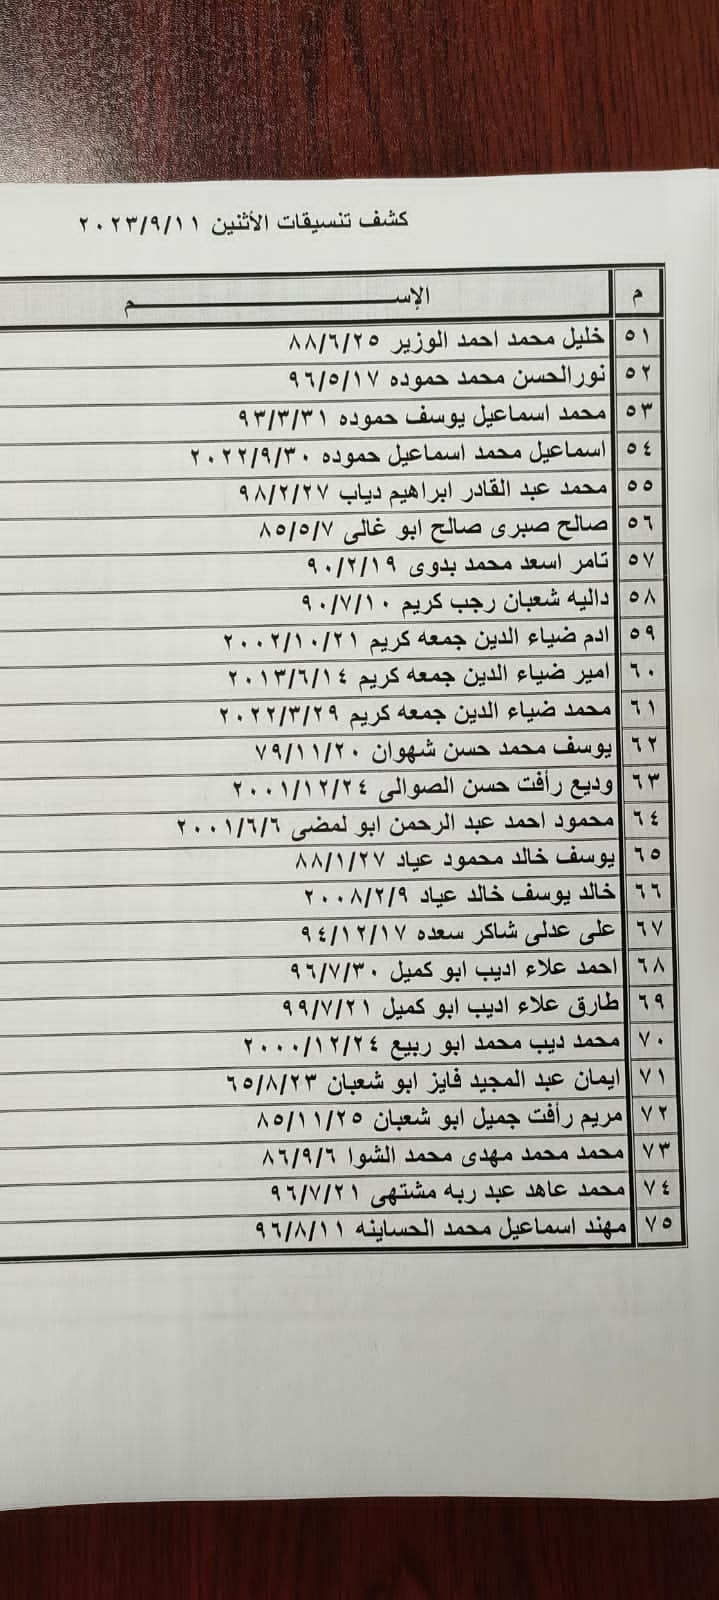 كشف تنسيقات الأثنين ٢٠٢٣/٩/١١
م الإســـــــــم
٥١ خليل محمد احمد الوزير ٨٨/٦/٢٥
٥٢ نورالحسن محمد حموده ٩٦/٥/١٧
٥٣ محمد اسماعيل يوسف حموده ٩٣/٣/٣١
٥٤ اسماعيل محمد اسماعيل حموده ٢٠٢٢/٩/٣٠
٥٥ محمد عبد القادر ابراهيم دياب ٩٨/٢/٢٧
٥٦ صالح صبرى صالح ابو غالى ٨٥/٥/٧
٥٧ تامر اسعد محمد بدوى ٩٠/٢/١٩
٥٨ داليه شعبان رجب كريم ٩٠/٧/١٠
٥٩ ادم ضياء الدين جمعه كريم ٢٠٠٢/١٠/٢١
٦٠ امير ضياء الدين جمعه كريم ٢٠١٣/٦/١٤
٦١ محمد ضياء الدين جمعه كريم ٢٠٢٢/٣/٢٩
٦٢ يوسف محمد حسن شهوان ٧٩/١١/٢٠
٦٣ وديع رأفت حسن الصوالى ٢٠٠١/١٢/٢٤
٦٤ محمود احمد عبد الرحمن ابو لمضى ٢٠٠١/٦/٦
٦٥ يوسف خالد محمود عياد ٨٨/١/٢٧
٦٦ خالد يوسف خالد عياد ٢٠٠٨/٢/٩
٦٧ على عدلى شاكر سعده ٩٤/١٢/١٧
٦٨ احمد علاء اديب ابو كميل ٩٦/٧/٣٠
٦٩ طارق علاء اديب ابو كميل ٩٩/٧/٢١
٧٠ محمد ديب محمد ابو ربيع ٢٠٠٠/١٢/٢٤
٧١ ايمان عبد المجيد فايز ابو شعبان ٦٥/٨/٢٣
٧٢ مريم رأفت جميل ابو شعبان ٨٥/١١/٢٥
٧٣ محمد محمد مهدى محمد الشوا ٨٦/٩/٦
٧٤ محمد عاهد عبد ربه مشتهى ٩٦/٧/٢١
٧٥ مهند اسماعيل محمد الحساينه ٩٦/٨/١١